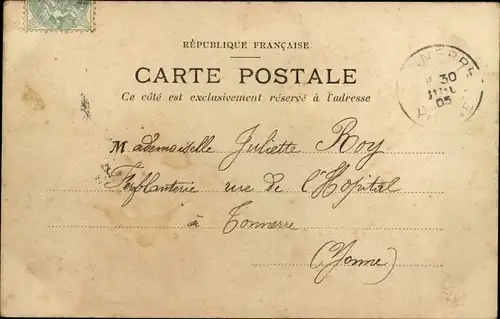 RÉPUBLIQUE FRANÇAISE
CARTE POSTALE
Ce côté est exclusivement réservé à l'adresse
30
05
Mademoiselle Juliette Roy
Ferblanterie rue de l'Hopital
à Tonnerre
(Yonne)